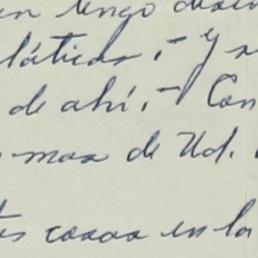 en tengo
láticas, - y
de ahí, - Con
mas de Ud.
cosas en la